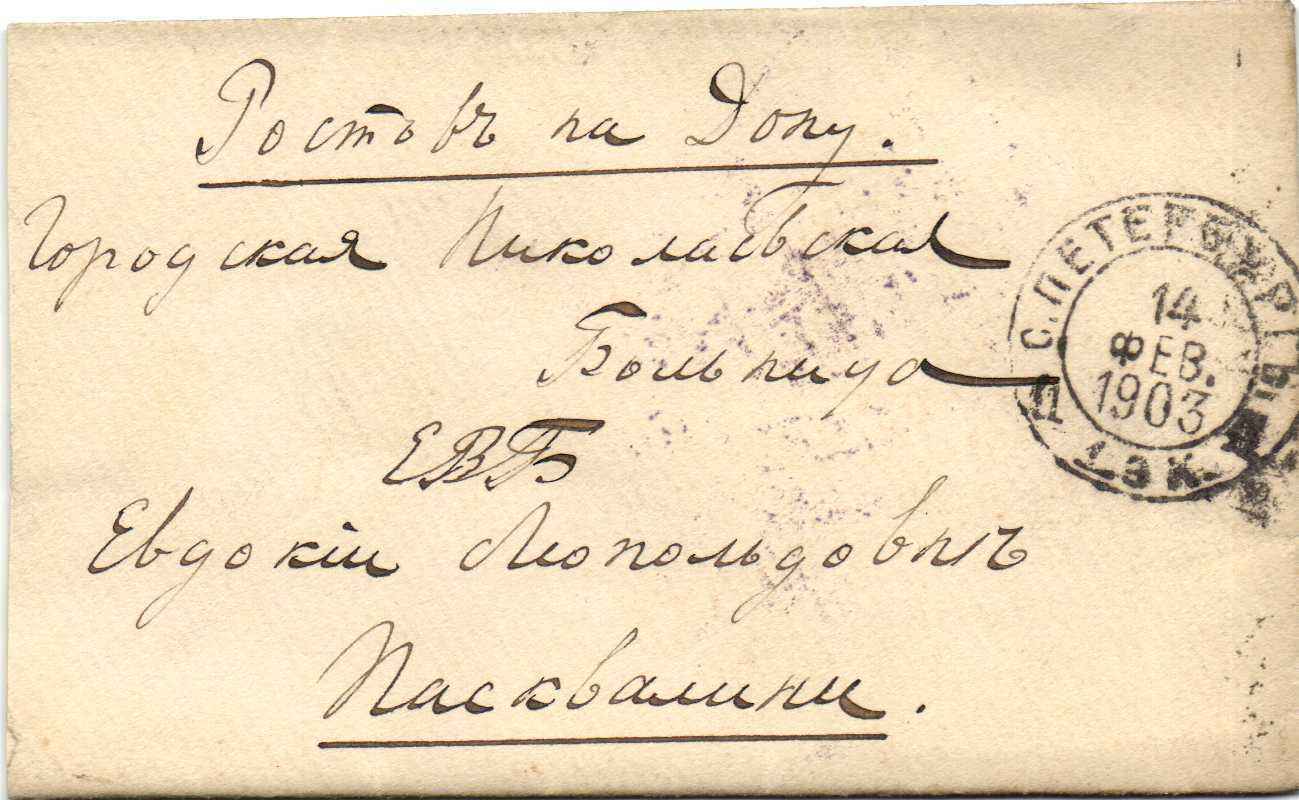 Ростовъ на Дону.
Городская Николаевская
Больница
ЕВБ
Евдокіи Леопольдовнѣ
Пасквалини.
С.ПЕТЕРБУРГЪ
14
ФЕВ.
1903
1 ЭК.